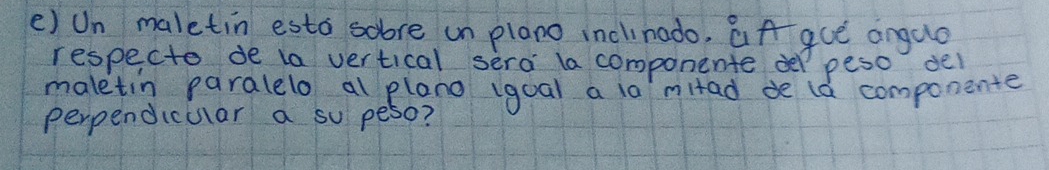 e) Un maletín está sobre un plano inclinado. ¿A qué ángulo
respecto de la vertical será la componente del peso del
maletín paralelo al plano igual a la mitad de la componente
perpendicular a su peso?